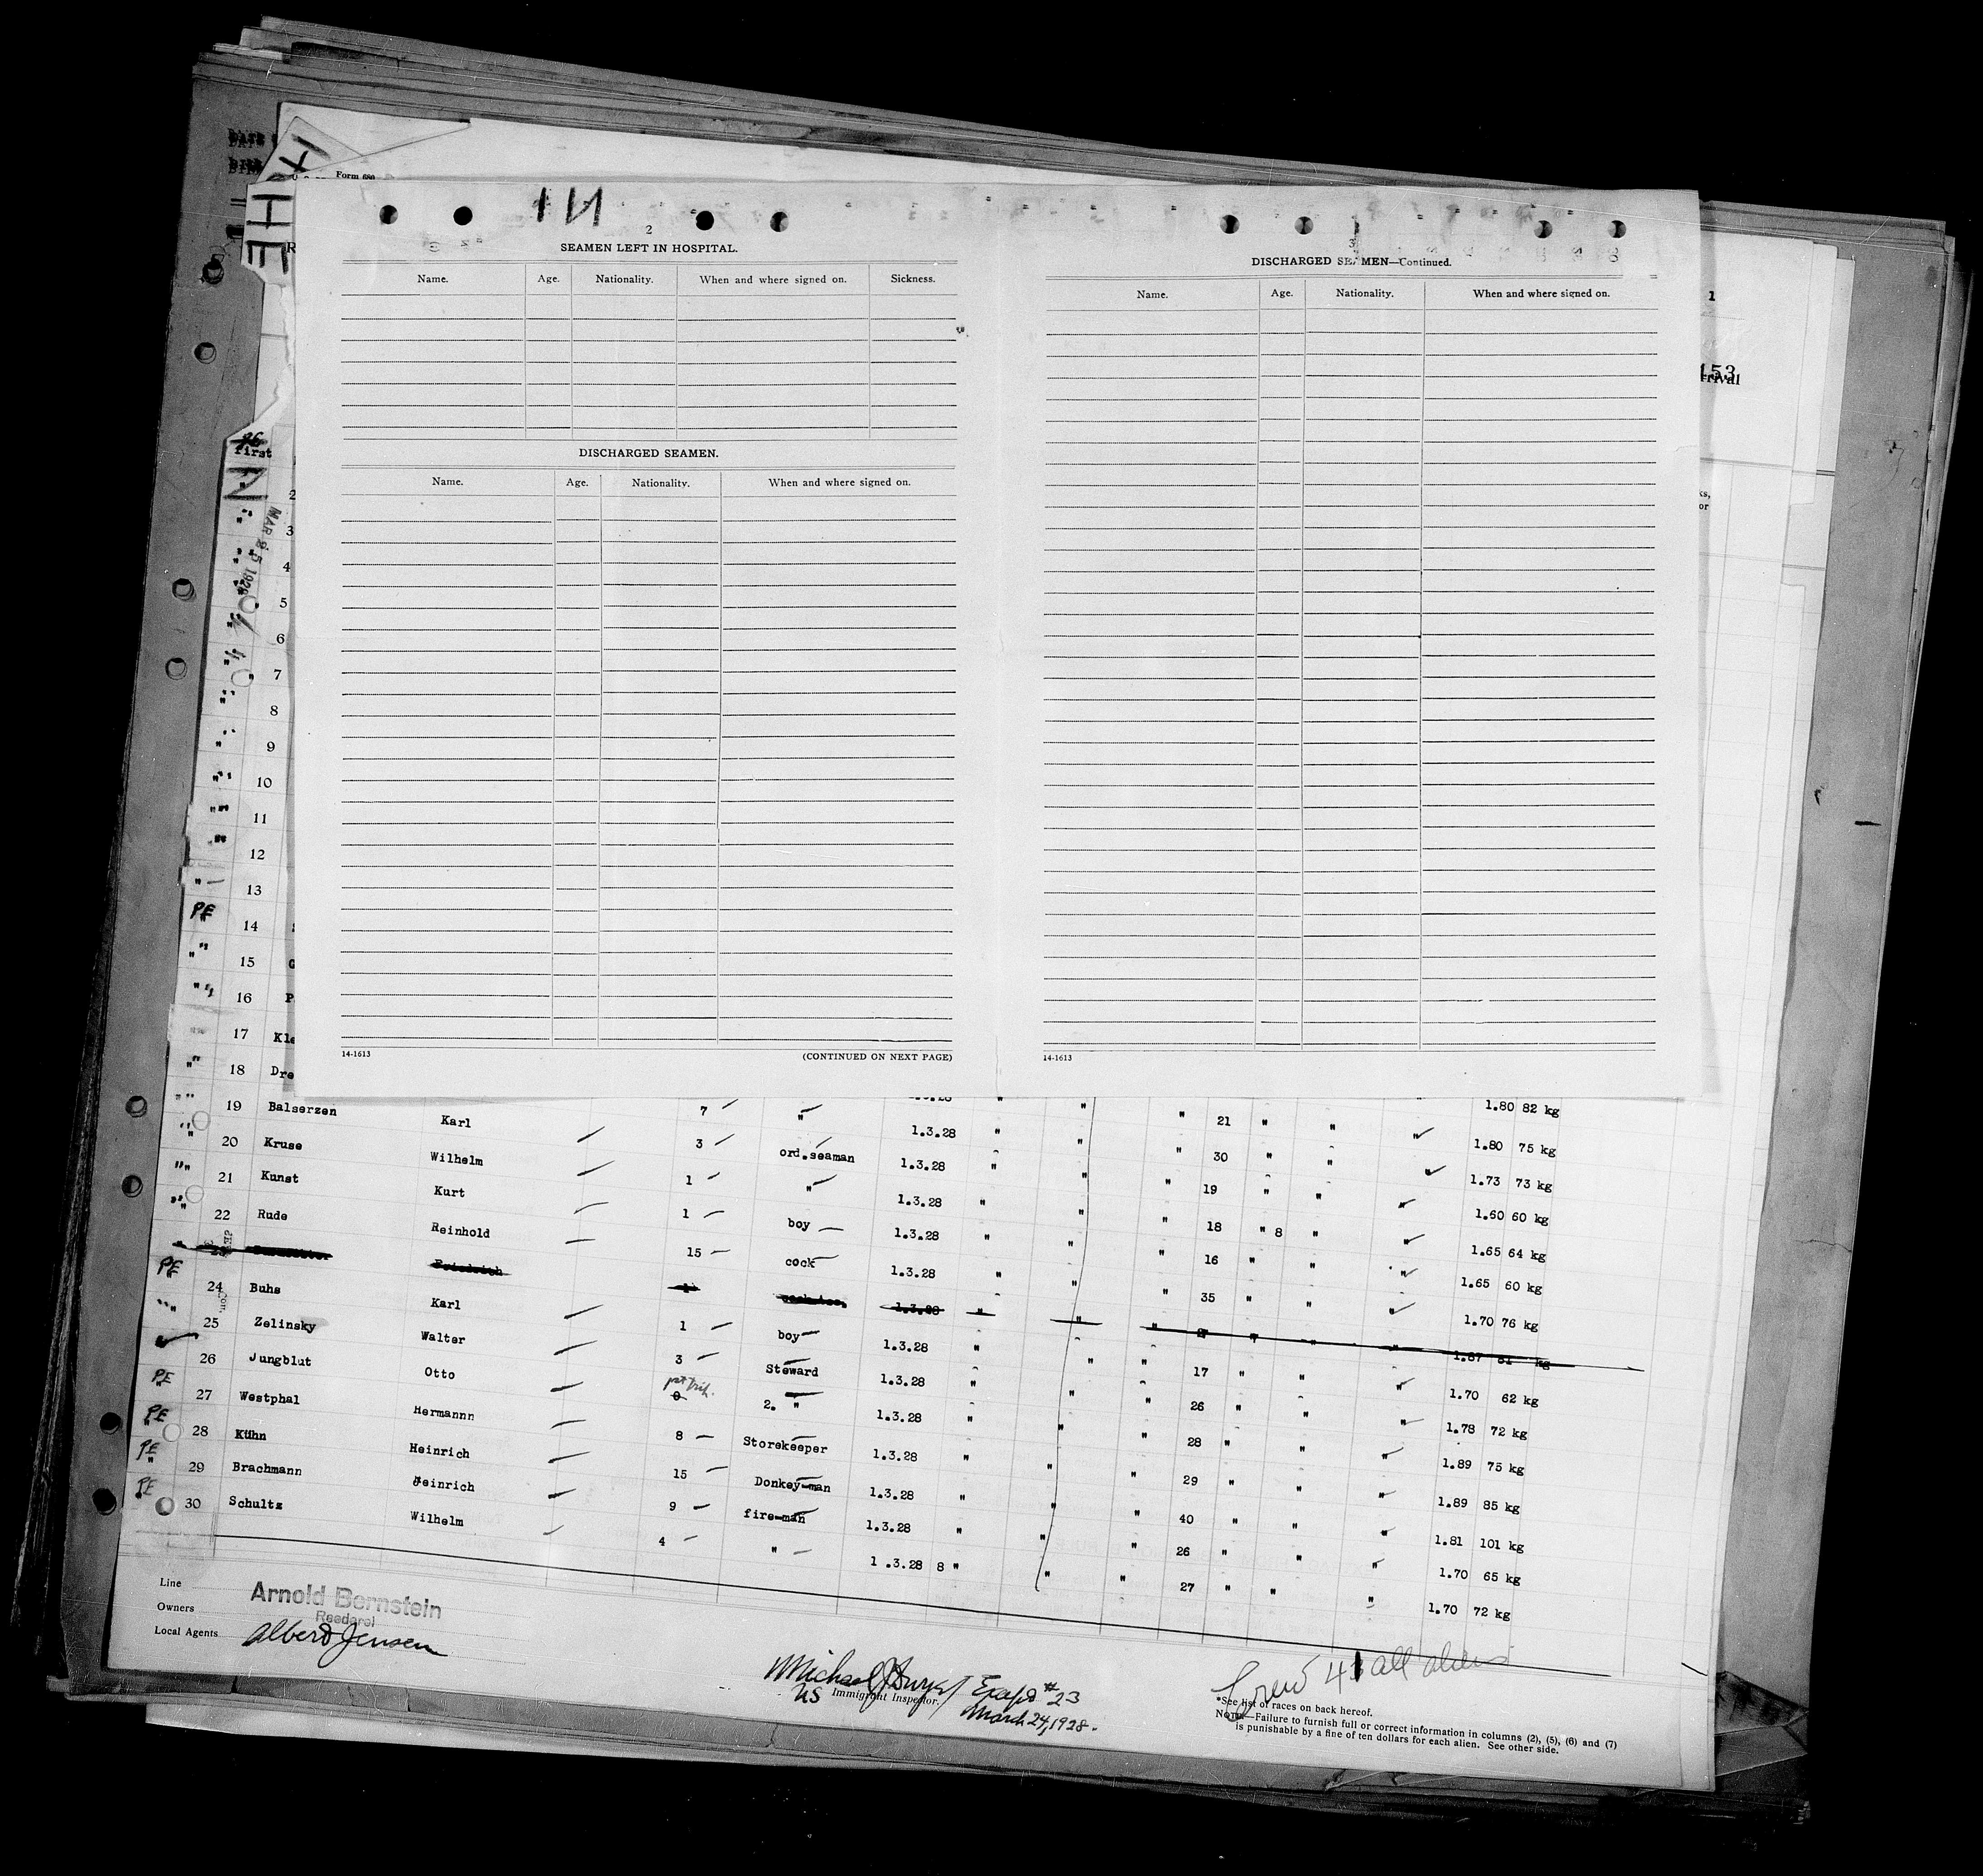 Form 680
IN
2
SEAMEN LEFT IN HOSPITAL.
Name. Age. Nationality. When and where signed on. Sickness.
DISCHARGED SEAMEN.
Name. Age. Nationality. When and where signed on.
14-1613 (CONTINUED ON NEXT PAGE)
3
DISCHARGED SEAMEN—Continued.
Name. Age. Nationality. When and where signed on.
14-1613
1
153
rrival
ks,
or
first
MAR 25 1928
2
3
4
5
6
7
8
9
10
11
12
13
PE 14
" 15 G
" 16 P
17 Kla
" 18 Dre
1.80 82 kg
" 21 " " 1.80 75 kg
7 " 1.3.28 " " " 30 " " 1.73 73 kg
" 19 Balserzen Karl 3 ord.seaman 1.3.28 " " " 19 " " 1.60 60 kg
" 20 Kruse Wilhelm 1 " 1.3.28 " " " 18 " 8 " 1.65 64 kg
" 21 Kunst Kurt 1 boy 1.3.28 " " " 16 " " 1.65 60 kg
" 22 Rude Reinhold 15 cock 1.3.28 " " " 35 " " 1.70 76 kg
23 Friedrich 1 1.3.28 " " " " " 1.87 81 kg
PE 24 Buhs Karl 1 boy 1.3.28 " " " 17 " " 1.70 62 kg
" 25 Zelinsky Walter 3 Steward 1.3.28 " " " 26 " " 1.78 72 kg
26 Jungblut Otto 0 2. " 1.3.28 " " " 28 " " 1.89 75 kg
PE 27 Westphal Hermannn 8 Storekeeper 1.3.28 " " " 29 " " 1.89 85 kg
PE 28 Kühn Heinrich 15 Donkey-man 1.3.28 " " " 40 " " 1.81 101 kg
PE 29 Brachmann Heinrich 9 fire-man 1.3.28 " " " 26 " " 1.70 65 kg
PE 30 Schultz Wilhelm 4 " 1.3.28 8 " " " 27 " " 1.70 72 kg
Line
Arnold Bernstein
Reederei
Owners
Local Agents Albert Jensen
US Immigrant Inspector.
#23
March 24, 1928.
Crew 41 all aliens
*See list of races on back hereof.
NOTE—Failure to furnish full or correct information in columns (2), (5), (6) and (7)
is punishable by a fine of ten dollars for each alien. See other side.